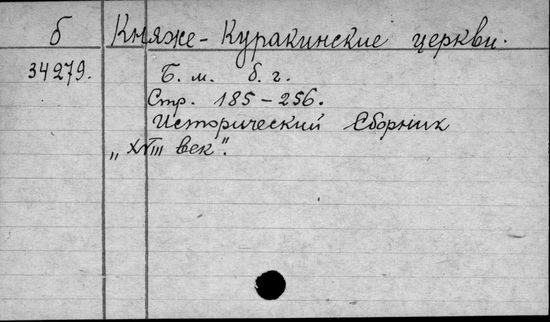 б Княже-Куракинские церкви.
34279. Б. м. б. г.
Стр. 185-256.
Исторический Сборник
„XVIII век".